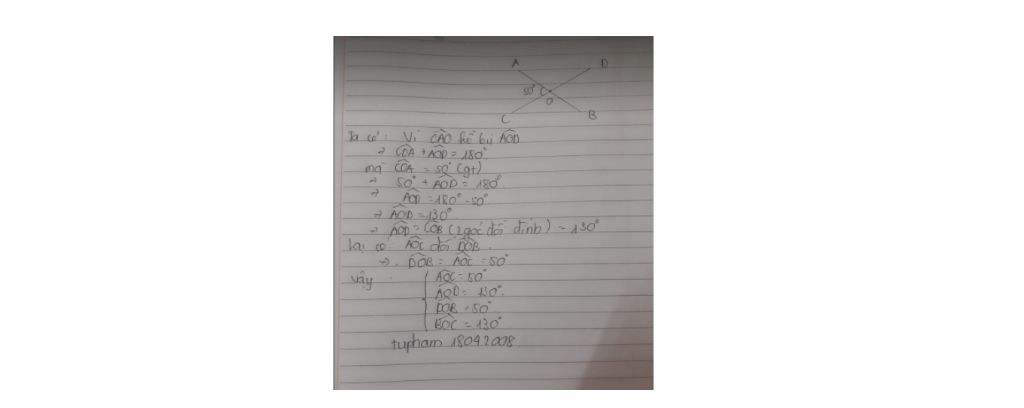 A D
50°
O
C B
Ta có: Vì CÂO kề bù AÔD
=> CÔA + AÔD = 180°
mà CÔA = 50° (gt)
=> 50° + AÔD = 180°
=> AÔD = 180° - 50°
=> AÔD = 130°
=> AÔD = CÔB (2 góc đối đỉnh) = 130°
Lại có: AÔC đối DÔB.
=> DÔB = AÔC = 50°
Vậy AÔC = 50°
AÔD = 130°.
DÔB = 50°
BÔC = 130°
tupham 18042008